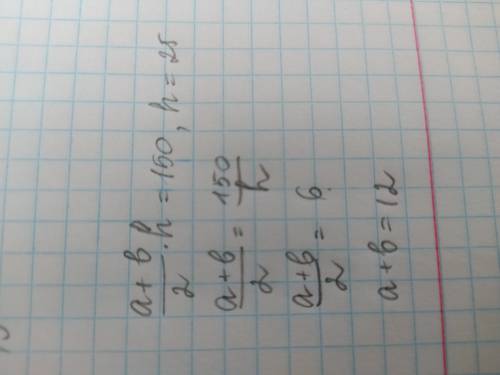 (a+b)/2 · h = 150, h = 25
(a+b)/2 = 150/h
(a+b)/2 = 6
a+b = 12